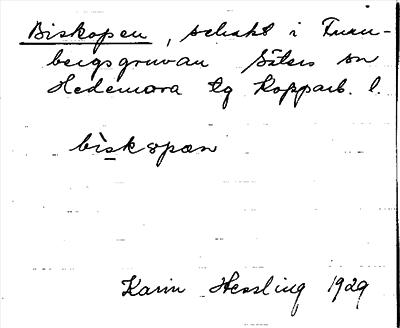 Biskopen, schakt i Tunn-
bergsgruvan Säters sn
Hedemora tg Kopparb. l.
bìskɷpæn
Karin Hessling 1929